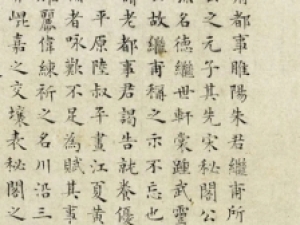 府都事睢陽朱君繼甫所
公之元子其先宋秘閣公
名德繼世軒裳踵武靈
公故繼甫稱之示不忘也
請老都事君謁告就養優
平原陸叔平畫江夏黄
者咏歎不足為賦其事
麗偉練祈之名川沿三
崐嘉之交壤表秘閣之